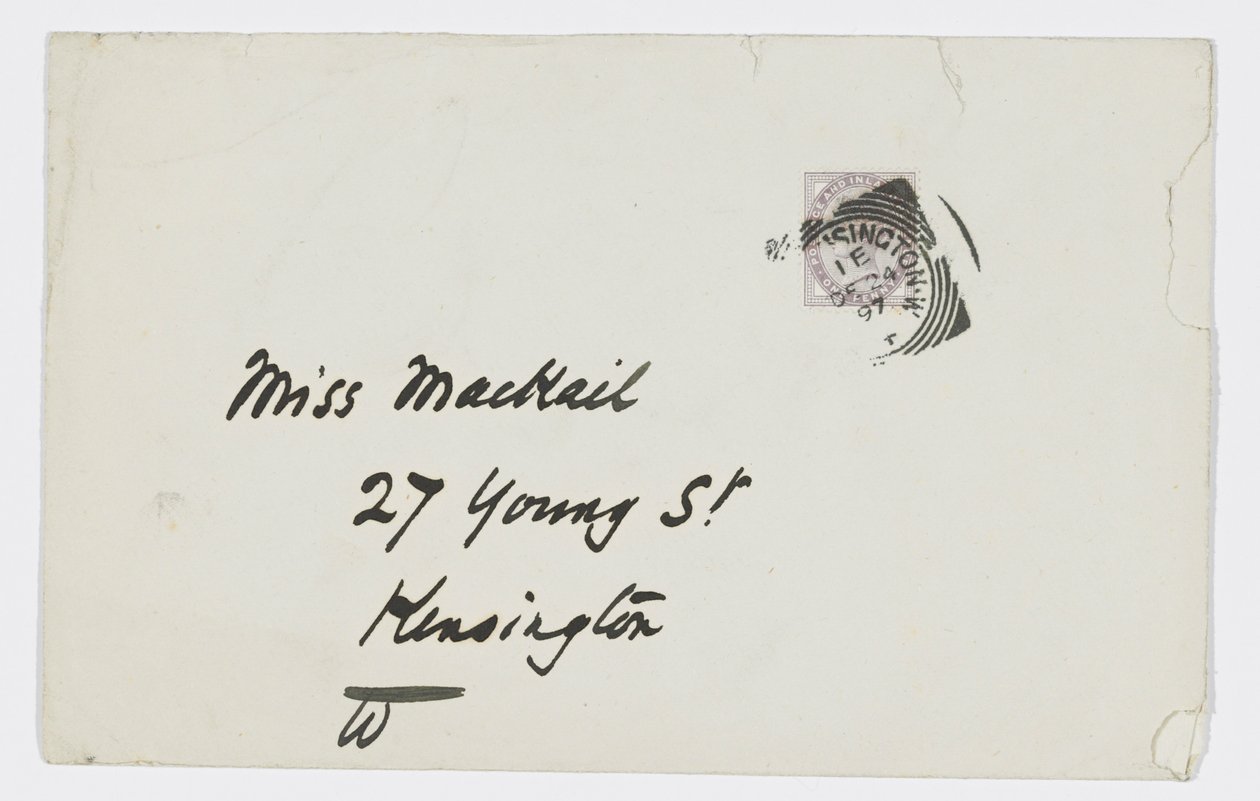 POSTAGE AND INLA
ONE PENNY
SINGTON·W.
1 E
DE 24
97
+
Miss MacKail
27 Young St
Kensington
W